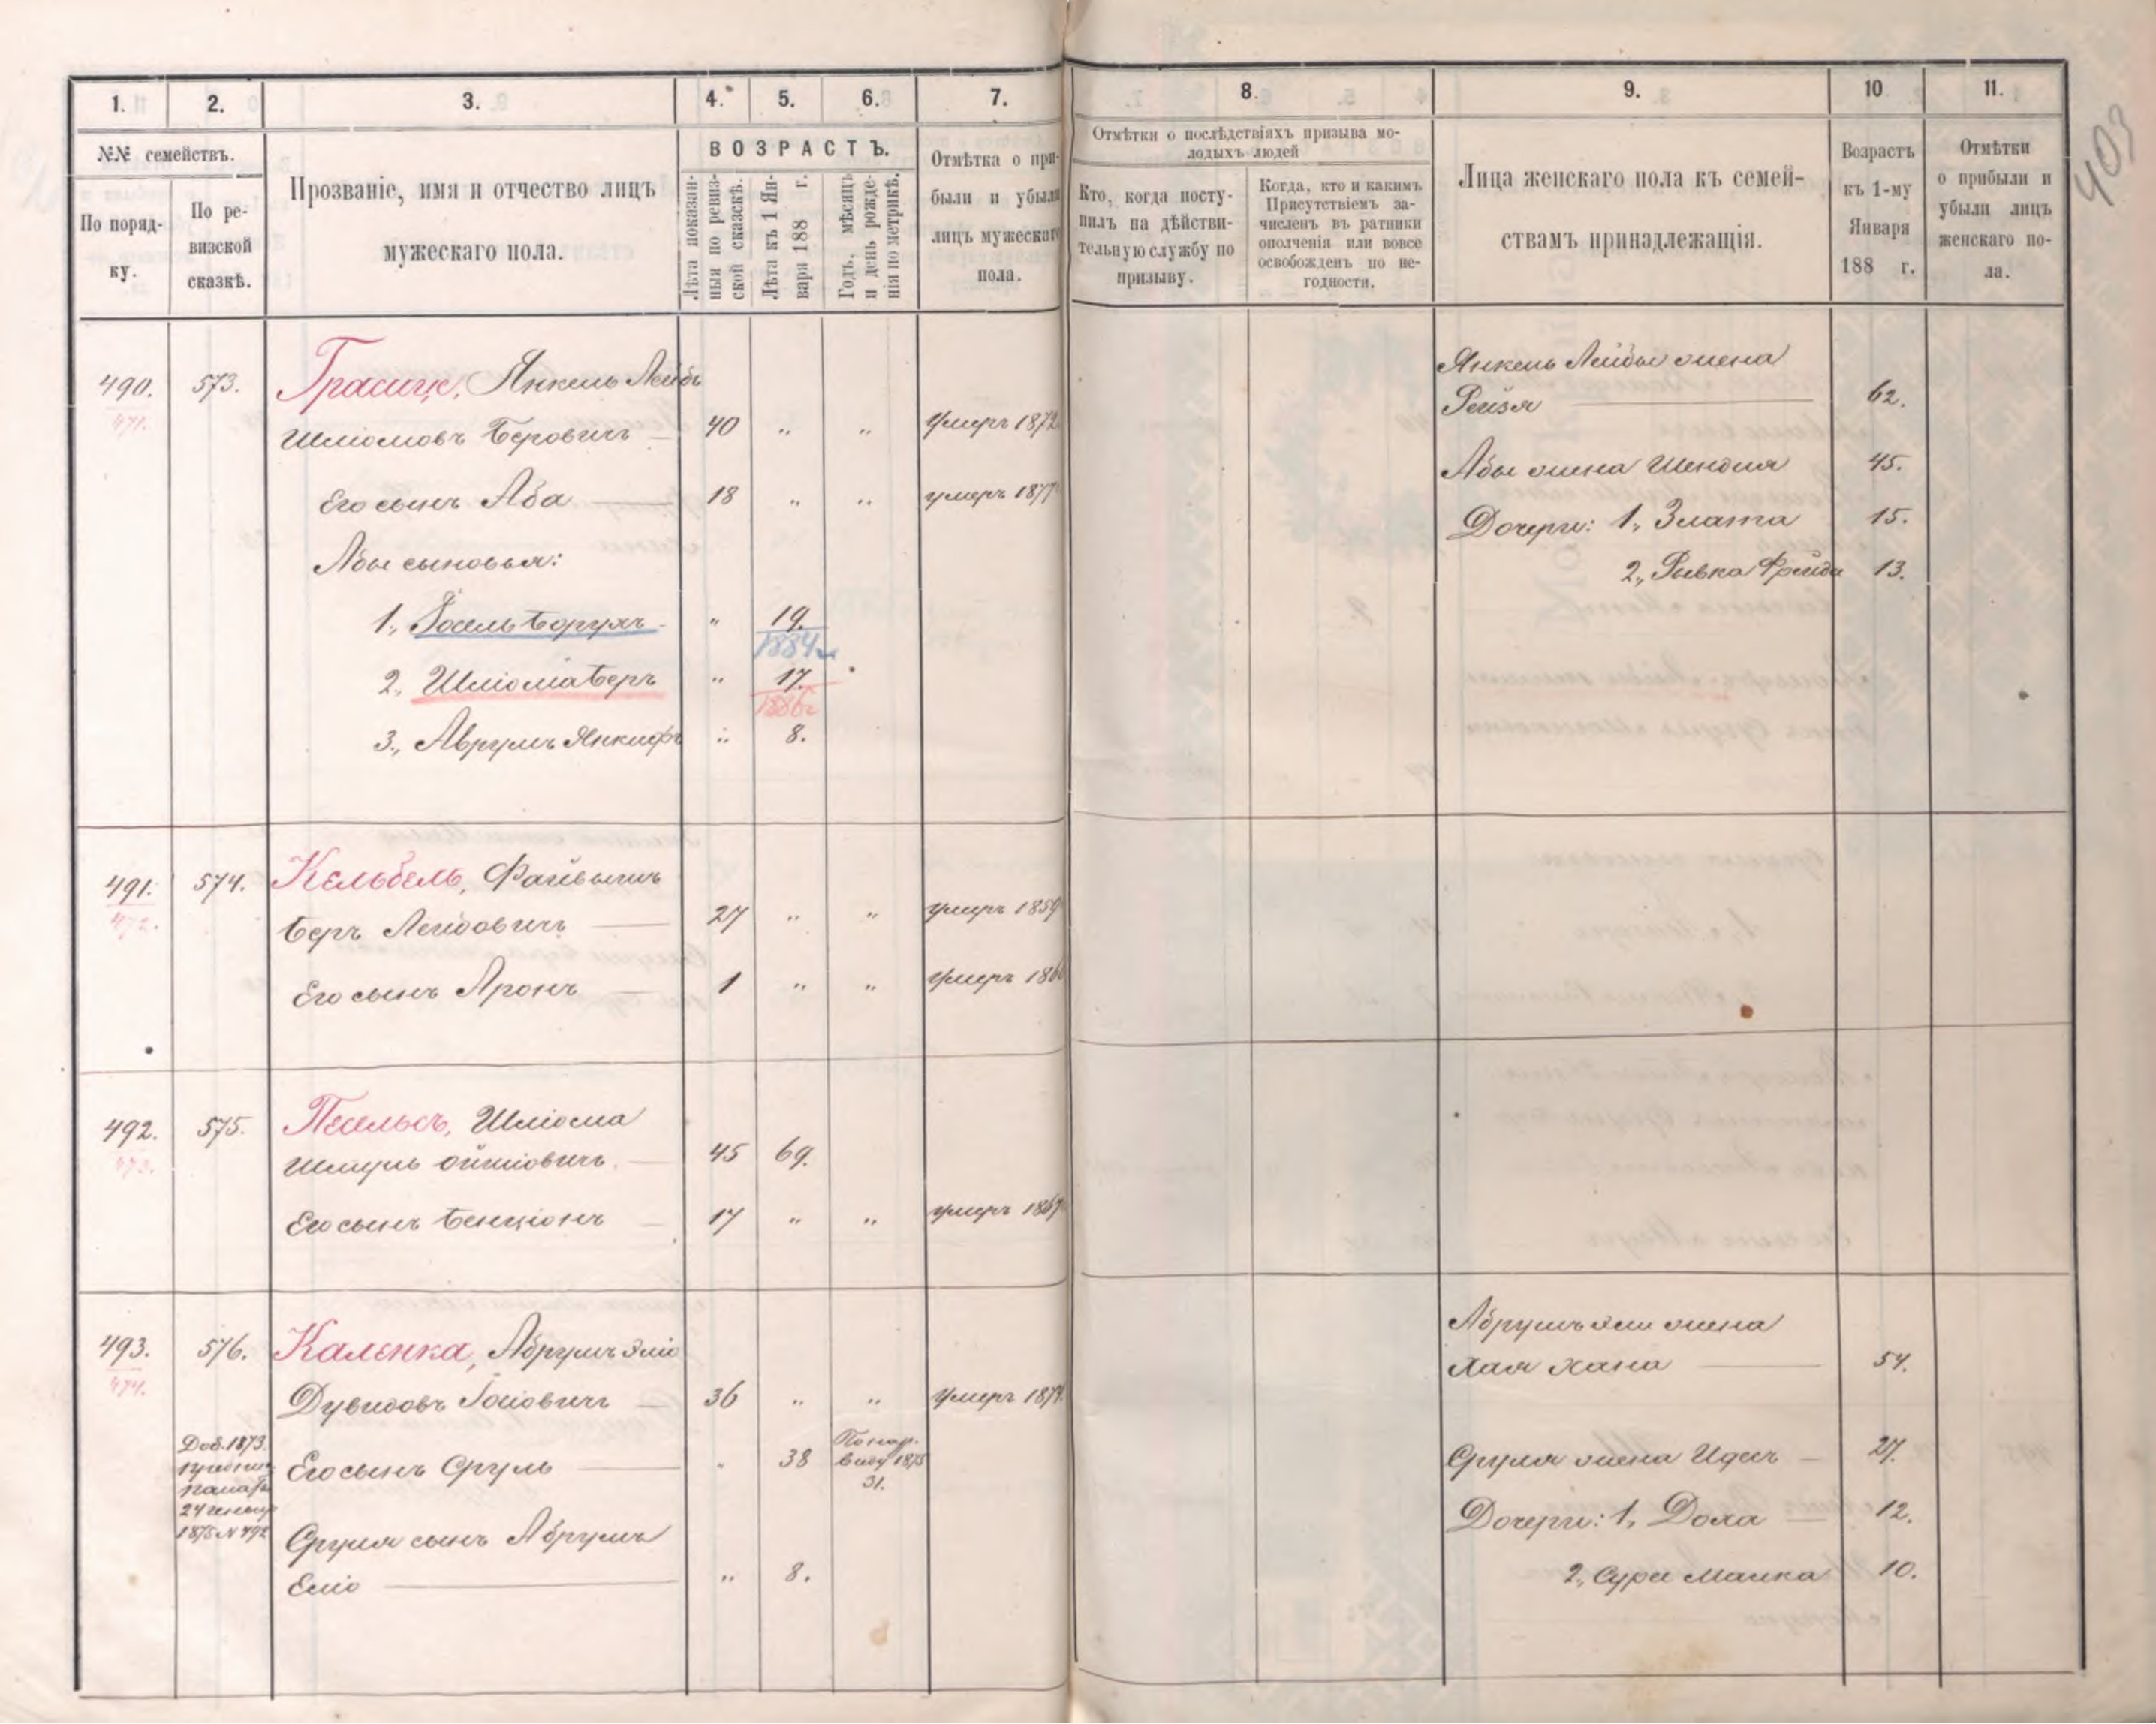 1. 2. 3. 4. 5. 6. 7. 8. 9. 10 11.
№№ семействъ.
По порядку.
По ревизской сказкѣ.
Прозваніе, имя и отчество лицъ
мужескаго пола.
ВОЗРАСТЪ.
Лѣта показанныя по ревизской сказкѣ.
Лѣта къ 1 Января 188 г.
Годъ, мѣсяцъ и день рожденія по метрикѣ.
Отмѣтка о прибыли и убыли лицъ мужескаго пола.
Отмѣтки о послѣдствіяхъ призыва молодыхъ людей
Кто, когда поступилъ на дѣйствительную службу по призыву.
Когда, кто и какимъ Присутствіемъ зачисленъ въ ратники ополченія или вовсе освобожденъ по негодности.
Лица женскаго пола къ семействамъ принадлежащія.
Возрастъ къ 1-му Января 188 г.
Отмѣтки о прибыли и убыли лицъ женскаго пола.
403
490. 573. Янкель Лейбъ
471.
Шліомовъ Беровичъ 40 " " Умеръ 1872
Его сынъ Аба 18 " " умеръ 1877
Абы сыновья:
1., Іосель Борухъ " 19.
1884 г.
2., Шліома Беръ " 17.
1886 г.
3., Аврумъ Янкифъ " 8.
Янкель Лейбы жена
Рейзя 62.
Абы жена Шендля 45.
Дочери: 1., Злата 15.
2., Рывка Фрейда 13.
491. 574. Кельбель, Файвышъ
472.
Беръ Лейбовичъ 27 " " умеръ 1859
Его сынъ Аронъ 1 " " Умеръ 1860
492. 575. Песельсъ, Шліома
473.
Шмуль Ойшіовичъ 45 69.
Его сынъ Бенціонъ 17 " " умеръ 1867
493. 576. Каленка, Абрумъ Эліо
474.
Дувидовъ Іосіовичъ 36 " " Умеръ 1874.
Доб. 1873.
24
1875 № 492
Его сынъ Сруль " 38 По нар. виду 1875
31.
Сруля сынъ Абрумъ
Еліо " 8.
Абрумъ Эли жена
Хая Хана 54.
Сруля жена Идесъ 27.
Дочери: 1., Доха 12.
2., Сура Малка 10.